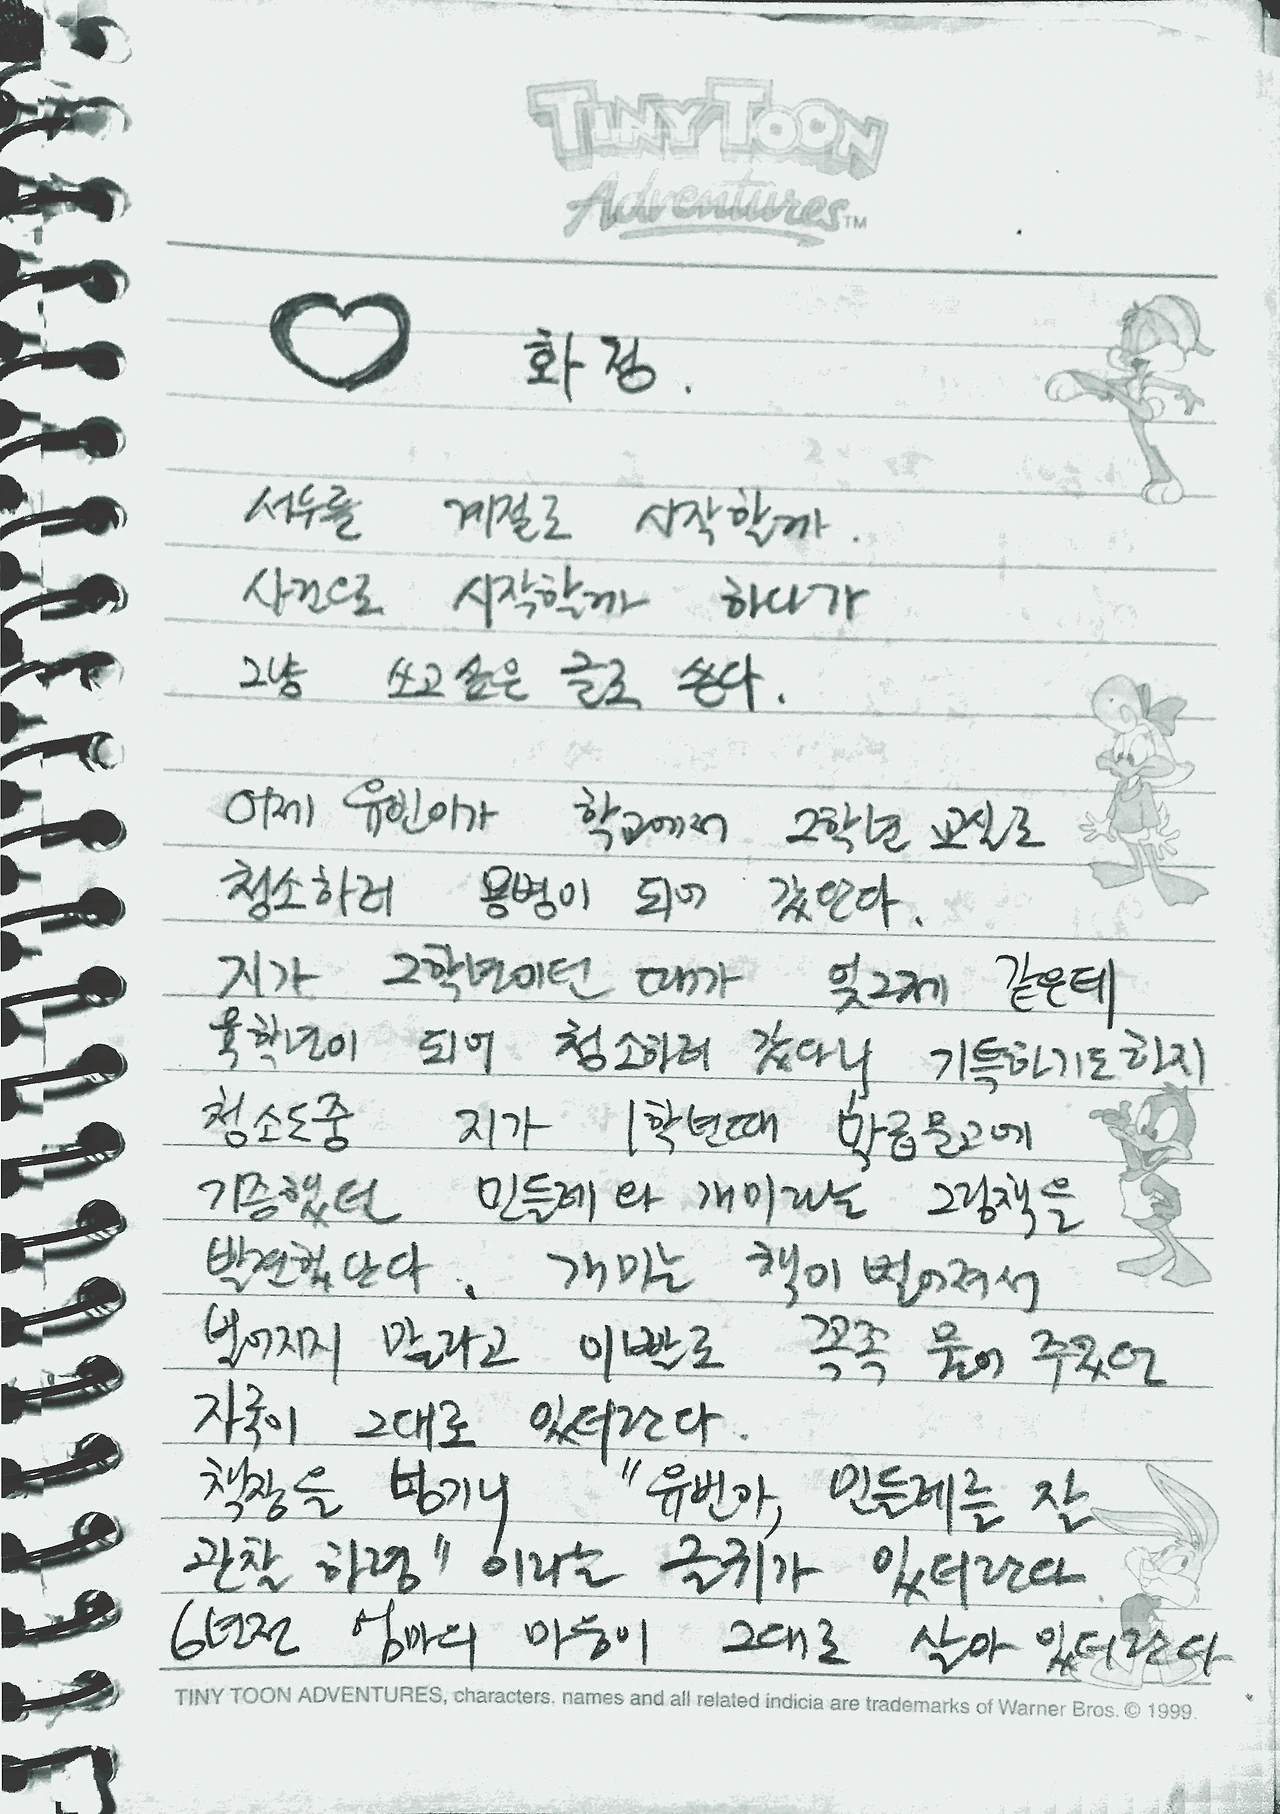 TINY TOON
Adventures™
화정.
서두를 계절로 시작할까.
사건으로 시작할까 하다가
그냥 쓰고싶은 글로 쓴다.
어제 유빈이가 학교에서 2학년 교실로
청소하러 용병이 되어 갔단다.
지가 2학년이던 때가 엊그제 같은데
육학년이 되어 청소하러 갔다니 기특하기도하지
청소도중 지가 1학년때 학급문고에
기증했던 민들레와 개미라는 그림책을
발견했단다. 개미는 책이 벌어져서
벌어지지 말라고 이빨로 꼭꼭 물어 주었던
자국이 그대로 있더란다.
책장을 넘기니 "유빈아, 민들레를 잘
관찰 하렴" 이라는 글귀가 있더란다
6년전 엄마의 마음이 그대로 살아 있더란다
TINY TOON ADVENTURES, characters, names and all related indicia are trademarks of Warner Bros. © 1999.